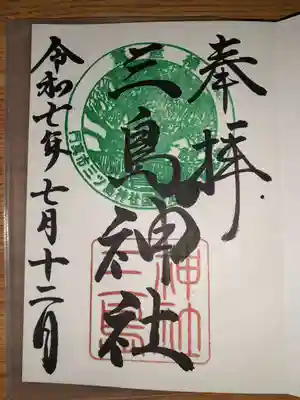 奉拝
三島神社
令和七年七月十二日
門真市三ツ島
神社
三島